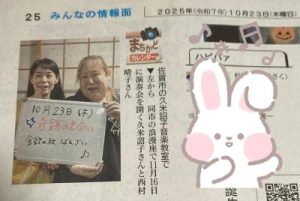 25 みんなの情報面
2025年(令和7年)10月23日(木曜日)
まちかど
カレンダー
佐賀市の久米詔子音楽教室で
▼左から 同市の浪漫座で11月16日
に演奏会を開く久米詔子さんと西村
晴子さん
10月23日(木)
奇跡の出会い
食欲の秋 ばんざい